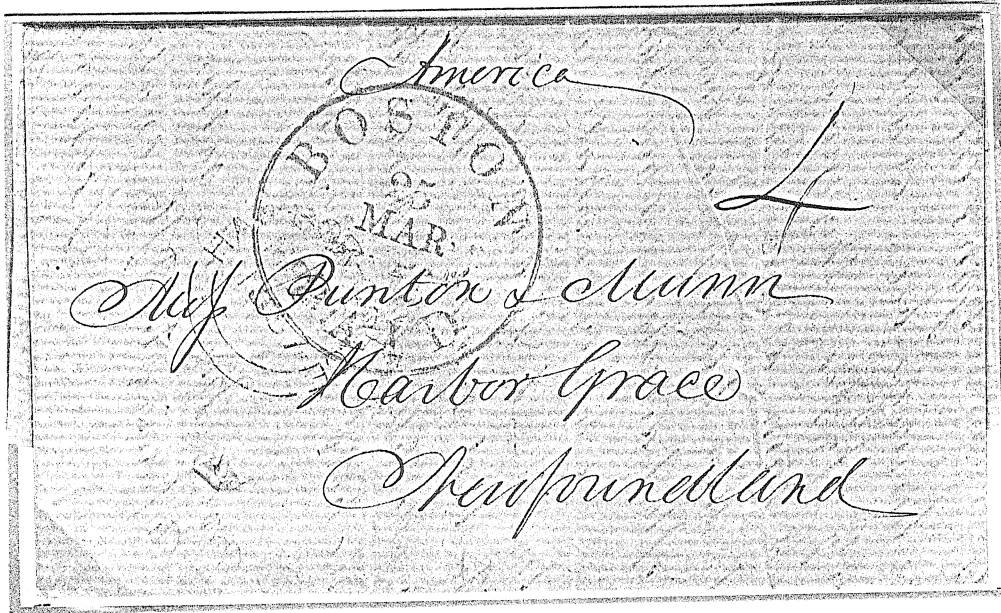 America
BOSTON
25
MAR
PAID
4
Mess Punton & Munn
Harbor Grace
Newfoundland